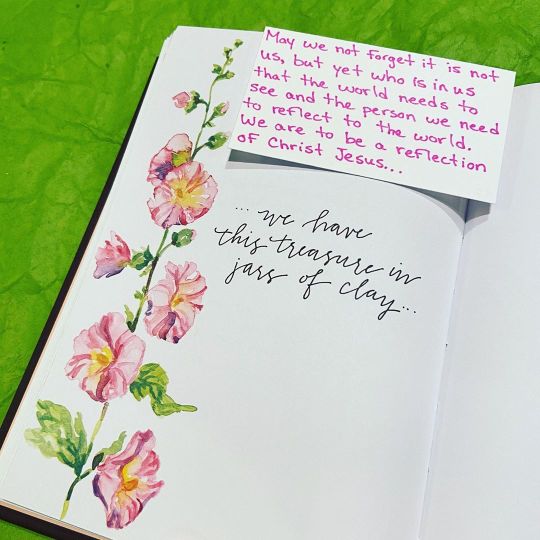 May we not forget it is not
us, but yet who is in us
that the world needs to
see and the person we need
to reflect to the world.
We are to be a reflection
of Christ Jesus...
... we have
this treasure in
jars of clay...